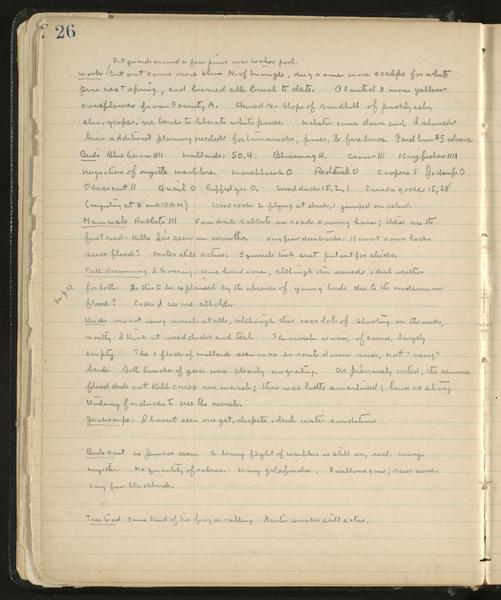 26
Put guards around a few pines near water pool.
Work: Cut out some more elms N. of bungle, dug some more scalps for white
pine next spring, and burned all brush to date. Planted 2 more yellow
coneflowers from County A. Cleared N. slope of sandhill of prickly ash,
elm, grape, red birch to liberate white pines. Webster came down and I showed
him additional plowing needed for tamaracks, pines, & fire lanes. Paid him $5 advance.
Birds Blue heron 1111 Mallards: 50, 4. Bluewing 4, Crow 111 Kingfisher 1111
Migration of myrtle warblers. Marsh hawk 0 Redtail 0 Coopers 1 Jacksnipe 0
Pheasant 11 Quail 0 Ruffed gr. 0, Wood duck 15, 2, 1 Canada goose 15, 28
(migrating at 8 and 10 am) Woodcock 2 flying at dusk, 1 jumped on island.
Mammals Rabbits 111 Found dead rabbits on road coming home; these are the
first road-kills I've seen in months. Very few deer tracks. Haven't come back
since flood? Moles still active. Squirrels took suet put out for chicks.
Fall drumming & covering. None heard or seen, although this seemed ideal weather
for both. Is this to be explained by the absence of young birds due to the midsummer
flood? Cooks I see are all old.
Ducks are not using marsh at all, although there was lots of shooting on the river,
mostly I think at wood ducks and teal. The marsh is now, of course, largely
empty. The 1 flock of mallards seen was en route down river, not "using"
birds. Both bunches of geese were clearly migrating. As previously noted, the summer
flood did not kill carex on marsh; there was little smartweed; hence no strong
tendency for ducks to use the marsh.
Jacksnipe: I haven't seen one yet, despite ideal water conditions
Birds cont no Juncos seen. A heavy flight of warblers is still on, incl. many
myrtle. No quantity of robins. Many goldfinches. Swallows gone; saw none.
Very few blackbirds.
Tree toad Same kind of tree frog is calling. Garter snakes still active.